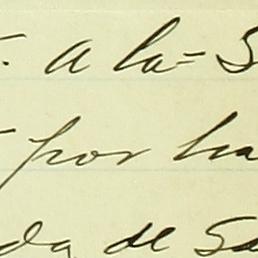 . a la= S
por ha
da de Sa